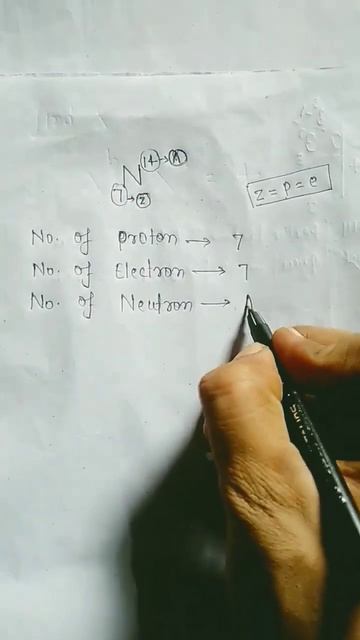 14 → A
N
7 → Z
Z = P = e
No. of Proton → 7
No. of Electron → 7
No. of Neutron →